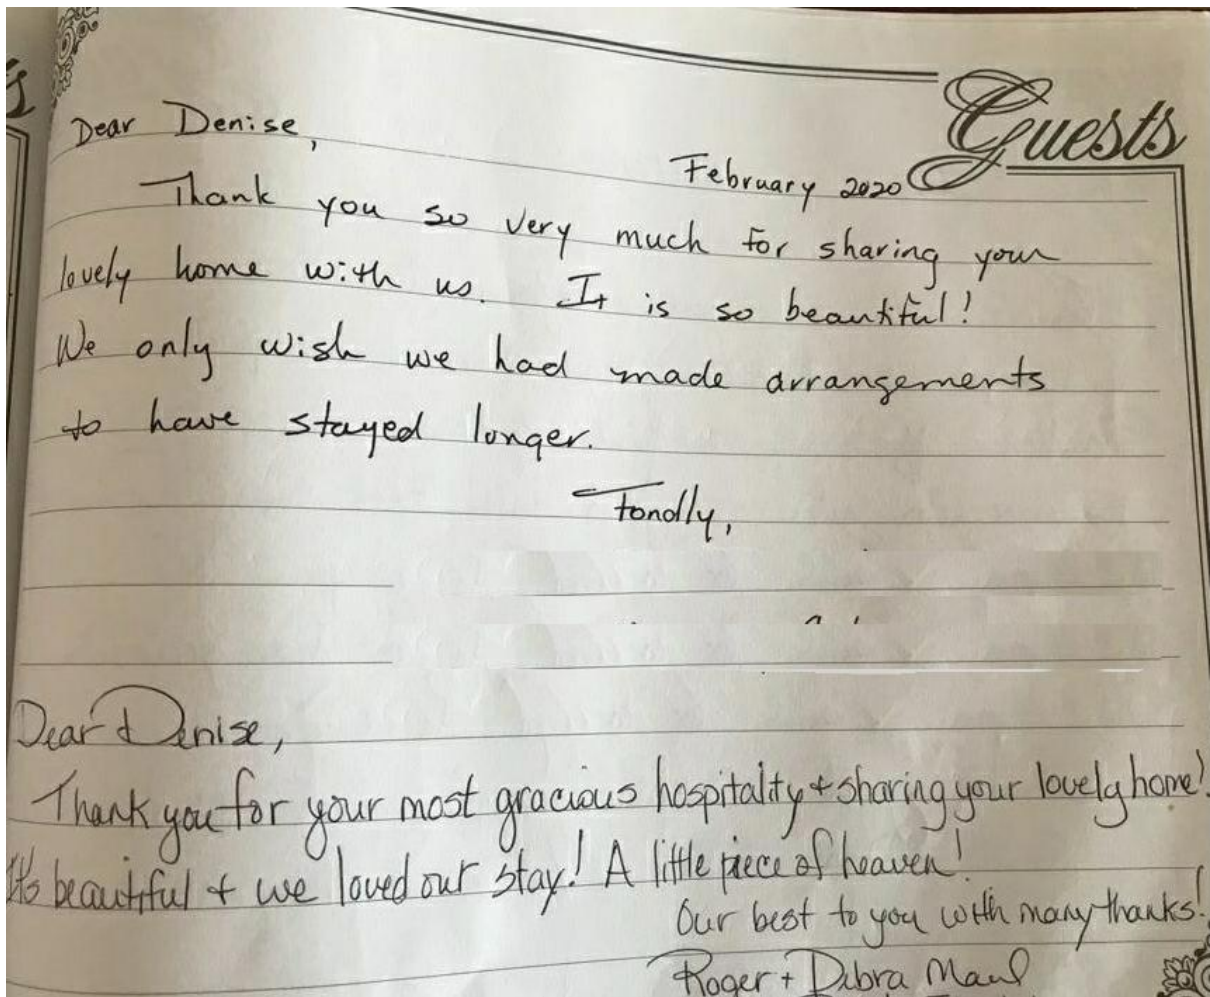 Guests
Dear Denise,
February 2020
Thank you so very much for sharing your
lovely home with us. It is so beautiful!
We only wish we had made arrangements
to have stayed longer.
Fondly,
Dear Denise,
Thank you for your most gracious hospitality + sharing your lovely home!
It's beautiful + we loved our stay! A little piece of heaven!
Our best to you with many thanks!
Roger + Debra